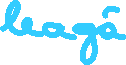 leagâ